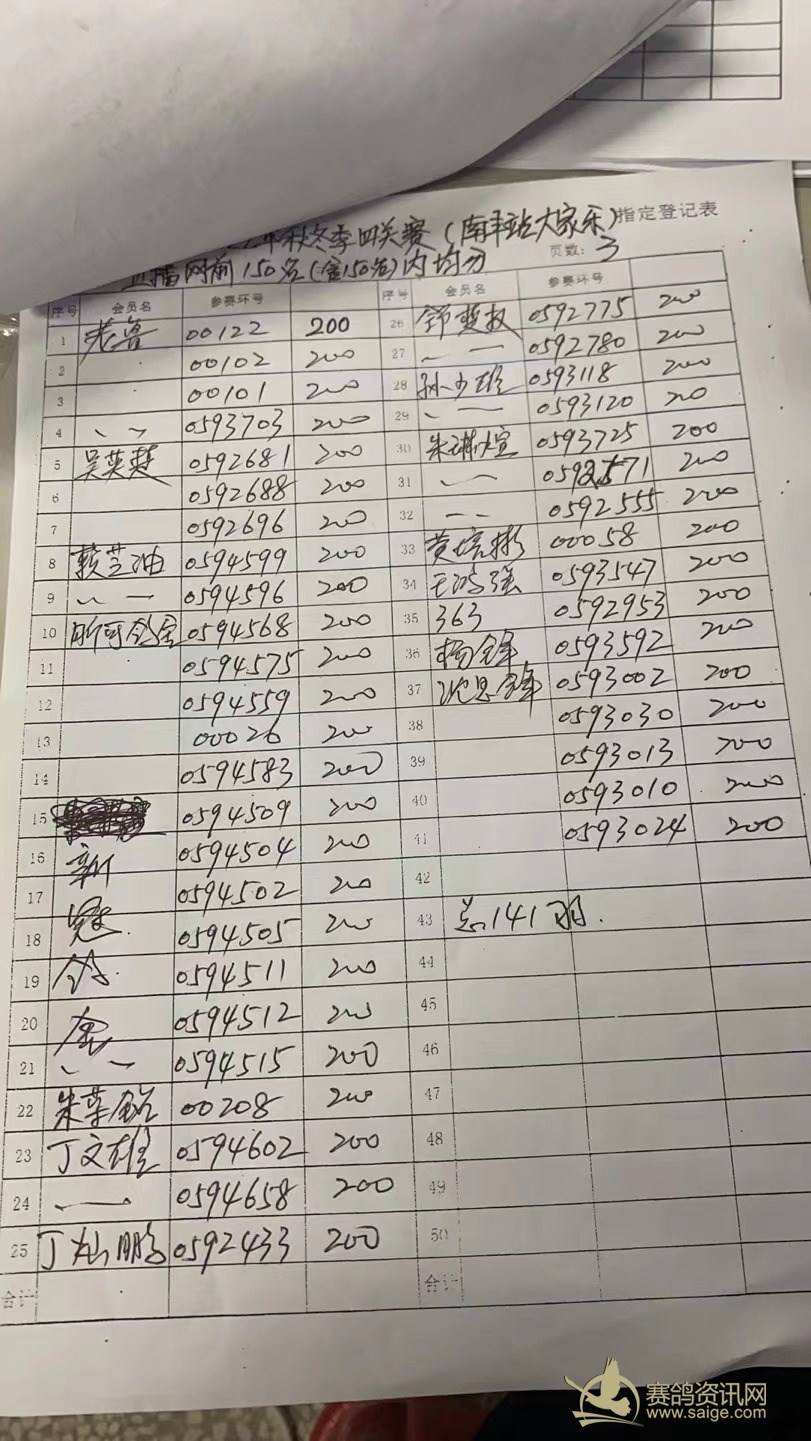 年秋冬季四关赛(南丰站大家乐)指定登记表
直播网前150名(含150名)内均分 页数: 3
序号 会员名 参赛环号
1 老鲁 00122 200
2 00102 200
3 00101 200
4 〃 0593703 200
5 吴英楚 0592681 200
6 0592688 200
7 0592696 200
8 赖芝油 0594599 200
9 〃 一 0594596 200
10 0594568 200
11 0594575 200
12 0594559 200
13 00026 200
14 0594583 200
15 0594509 200
16 新 0594504 200
17 0594502 200
18 冠 0594505 200
19 鸽 0594511 200
20 舍 0594512 200
21 〃 一 0594515 200
22 朱荣 00208 200
23 丁文雄 0594602 200
24 一 0594658 200
25 丁灿鹏 0592433 200
合计
序号 会员名 参赛环号
26 0592775 200
27 〃 一 0592780 200
28 孙少雄 0593118 200
29 〃 一 0593120 200
30 朱琳煊 0593725 200
31 〃 一 0592571 200
32 〃 0592555 200
33 黄培彬 00058 200
34 王鸿强 0593547 200
35 363 0592953 200
36 杨锋 0593592 200
37 沈思锋 0593002 200
38 0593030 200
39 0593013 200
40 0593010 200
41 0593024 200
42
43 总141羽.
44
45
46
47
48
49
50
合计
赛鸽资讯网
www.saige.com